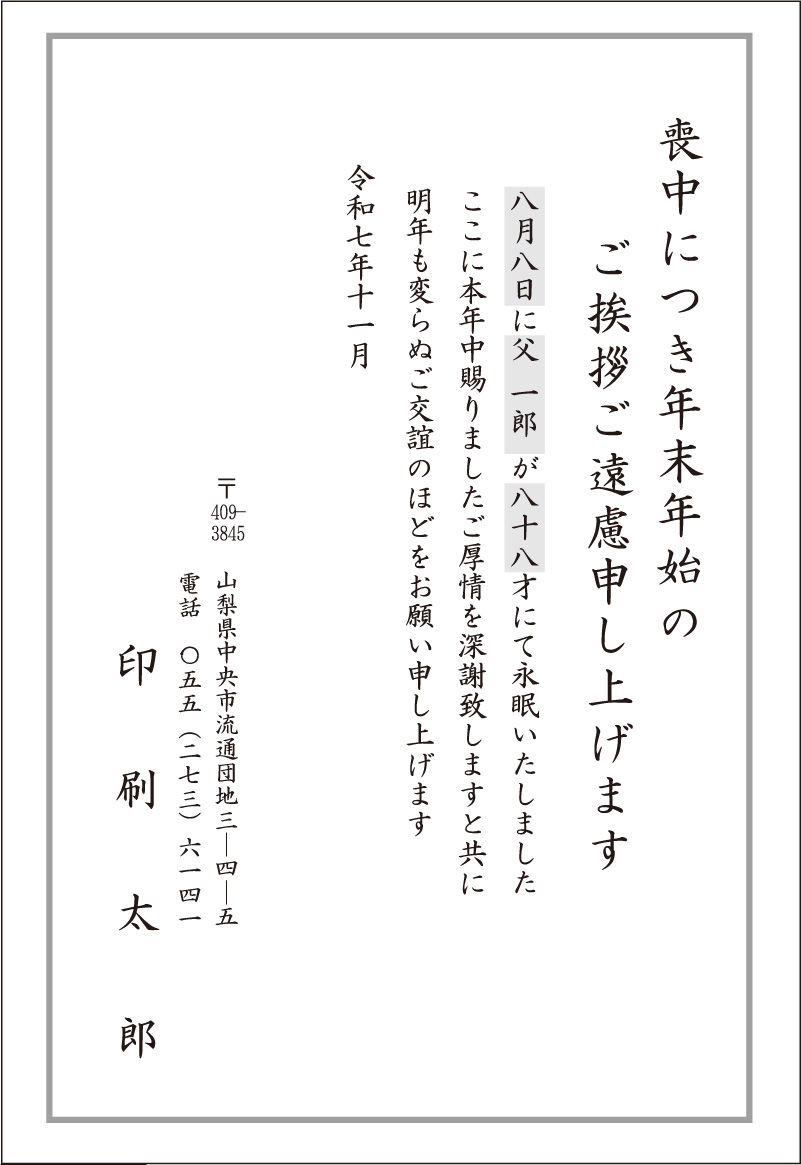 喪中につき年末年始の
ご挨拶ご遠慮申し上げます
八月八日に父 一郎 が八十八才にて永眠いたしました
ここに本年中賜りましたご厚情を深謝致しますと共に
明年も変らぬご交誼のほどをお願い申し上げます
令和七年十一月
〒409-3845 山梨県中央市流通団地三―四―五
電話 〇五五(二七三)六一四一
印刷太郎